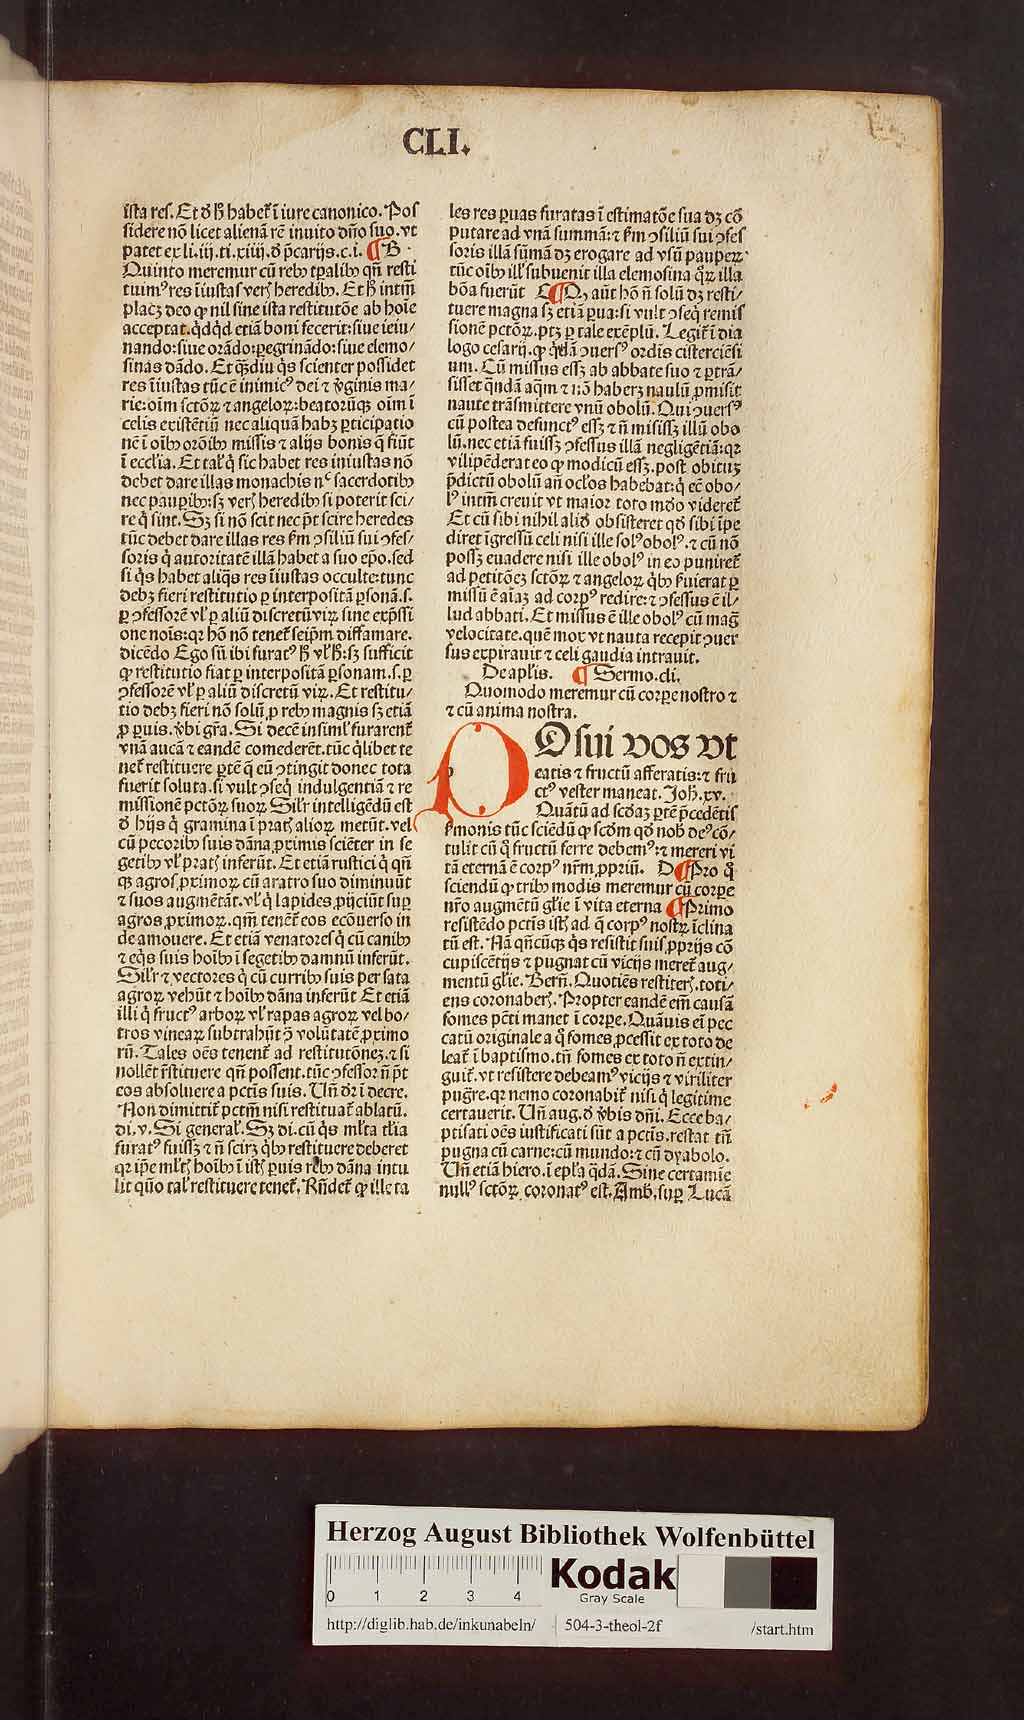 CLI.
ista res. Et ꝺ hꝫ habet᷑ ī iure canonico. Pos
sidere nō licet alienā rē inuito dn̄o suo. vt
patet ex li. iij. ti. xiiij. ꝺ p̄carijs. c. i. ¶ B
Quinto meremur cū rebꝰ tꝑalibꝰ qn̄ resti
tuimꝰ res iniustas veris heredibꝰ. Et hꝫ intm̄
placꝫ deo ꝙ nil sine ista restitutōe ab hoīe
acceptat. q̇dq̇d etiā boni fecerit: siue ieiu/
nando: siue orādo: ꝑegrinādo: siue elemo/
sinas dādo. Et qꝫdiu q̇s scienter possidet
res īiustas tūc ē inimicꝰ dei ⁊ v̄ginis ma/
rie: oīm sctōꝝ ⁊ angeloꝝ: beatorūqꝫ oīm ī
celis existētiū nec aliquā habꝫ ꝑticipatio
nē ī oībꝰ orōibꝰ missis ⁊ alijs bonis q̄ fiūt
ī eccl'ia. Et tal' q̇ sic habet res iniustas nō
debet dare illas monachis nᶜ sacerdotibꝰ
nec pauꝑibꝰ: sꝫ veris heredibꝰ si poterit sci/
re q̇ sint. Sꝫ si nō scit nec pt̄ scire heredes
tūc debet dare illas res ẜm ↄsiliū sui ↄfes/
soris q̇ autoritatē illā habet a suo epō. sed
si q̇s habet aliq̄s res īiustas occulte: tunc
debꝫ fieri restitutio ꝑ interpositā ꝑsonā. s.
ꝑ ↄfessorē vl' ꝑ aliū discretū viꝝ sine exp̄ssi
one nois: qꝛ hō nō tenet᷑ seip̄m diffamare.
dicēdo Ego sū ibi furatꝰ hꝫ vl' hꝫ: sꝫ sufficit
ꝙ restitutio fiat ꝑ interpositā ꝑsonam. s. ꝑ
ↄfessorē vl' ꝑ aliū discretū viꝝ. Et restitu/
tio debꝫ fieri nō solū ꝓ rebꝰ magnis sꝫ etiā
ꝓ ꝑuis. v̄bi gr̄a. Si decē insiml' furarent᷑
vnā aucā ⁊ eandē comederēt. tūc q̇libet te
net᷑ restituere ꝑtē q̄ eū ↄtingit donec tota
fuerit soluta. si vult ↄseq̇ indulgentiā ⁊ re
missionē pctōꝝ suoꝝ Sil'r intelligēdū est
ꝺ hijs q̇ gramina ī pratis alioꝝ metūt. vel
cū pecoribꝰ suis dāna ꝓximis sciēter in se
getibꝰ vl' pratis inferūt. Et etiā rustici q̇ qn̄
qꝫ agros ꝓximoꝝ cū aratro suo diminuūt
⁊ suos augmētāt. vl' q̇ lapides ꝓijciūt suꝑ
agros ꝓximoꝝ. qm̄ tenent᷑ eos ecōuerso in
de amouere. Et etiā venatores q̇ cū canibꝰ
⁊ eq̇s suis hoībꝰ ī segetibꝰ damnū inferūt.
Sil'r ⁊ vectores q̇ cū curribꝰ suis per sata
agroꝝ vehūt ⁊ hoībꝰ dāna inferūt Et etiā
illi q̇ fructꝰ arboꝝ vl' rapas agroꝝ vel bo/
tros vineaꝝ subtrahūt ↄ̄ volūtatē ꝓximo
rū. Tales oēs tenent᷑ ad restitutōneꝫ. ⁊ si
nollēt r̄stituere qn̄ possent. tūc ↄfessor n̄ pt̄
eos absoluere a pctīs suis. Vn̄ dr̄ ī decre.
Non dimittit᷑ pctm̄ nisi restituat᷑ ablatū.
di. v. Si general'. Sꝫ di. cū q̇s ml'ta tl'ia
furatꝰ fuissꝫ ⁊ n̄ scirꝫ q̇bꝰ restituere deberet
qꝛ ip̄e ml'tis hoībꝰ ī istis ꝑuis rebꝰ dāna intu
lit quō tal' restituere tenet᷑. Rn̄det᷑ ꝙ ille ta
les res ꝑuas furatas ī estimatōe sua dꝫ cō
putare ad vnā summā: ⁊ ẜm ↄsiliū sui ↄfes
soris illā sūmā dꝫ erogare ad vsū pauꝑeꝝ.
tūc oībꝰ ill' subuenit illa elemosina qꝛ illa
bōa fuerūt C ¶ Qꝫ aūt hō n̄ solū dꝫ resti/
tuere magna sꝫ etiā ꝑua: si vult ↄseq̇ remis
sionē pctōꝝ. ptꝫ ꝑ tale exēplū. Legit᷑ ī dia
logo cesarij. ꝙ q̇dā ↄuersꝰ ordīs cisterciēsi
um. Cū missus essꝫ ab abbate suo ⁊ ꝑtrā/
sisset q̄ndā aq̄m ⁊ nō haberꝫ naulū ꝓmisit
naute trāsmittere vnū obolū. Qui ↄuersꝰ
cū postea defunctꝰ essꝫ ⁊ n̄ misissꝫ illū obo
lū. nec etiā fuissꝫ ↄfessus illā negligētiā: qꝛ
vilipēderat eo ꝙ modicū essꝫ. post obituꝫ
p̄dictū obolū an̄ ocl'os habebat: q̇ ec̄ obo/
lꝰ intm̄ creuit vt maior toto mūdo videret᷑
Et cū sibi nihil aliud obsisteret qd̄ sibi īpe
diret īgressū celi nisi ille solꝰ obolꝰ. ⁊ cū nō
possꝫ euadere nisi ille obolꝰ in eo puniret᷑
ad petitōeꝫ sctōꝝ ⁊ angeloꝝ q̇bꝰ ẜuierat ꝑ
missū ē aīaꝫ ad corpꝰ redire: ⁊ ↄfessus ē il/
lud abbati. Et missus ē ille obolꝰ cū maḡ
velocitate. quē mox vt nauta recepit ↄuer
sus expirauit ⁊ celi gaudia intrauit.
De apl'is. ¶ Sermo. cli.
Quomodo meremur cū corꝑe nostro ⁊
⁊ cū anima nostra.
POsui vos vt
eatis ⁊ fructū afferatis: ⁊ fru
ctꝰ vester maneat. Joh̄. xv.
Quātū ad scd̄aꝫ ꝑtē p̄cedētis
ẜmonis tūc sciēdū ꝙ scd̄m qd̄ nob̄ deꝰ cō/
tulit cū q̇ fructū ferre debemꝰ: ⁊ mereri vi
tā eternā ē corpꝰ nr̄m ꝓpriū. D ¶ Pro q̇
sciendū ꝙ tribꝰ modis meremur cū corꝑe
nr̄o augmētū gl'ie ī vita eterna ¶ Primo
resistēdo pctīs istis ad q̄ corpꝰ nostꝝ īclina
tū est. Nā qn̄cūqꝫ q̇s resistit suis ꝓprijs cō
cupiscētijs ⁊ pugnat cū vicijs meret᷑ aug/
mentū gl'ie. Bern̄. Quotiēs restiteris. toti/
ens coronaberis. Propter eandē em̄ causā
fomes pct̄i manet ī corꝑe. Quāuis ei̅ pec
catū originale a q̇ fomes ꝓcessit ex toto de
leat᷑ ī baptismo. tn̄ fomes ex toto n̄ extin/
guit᷑. vt resistere debeamꝰ vicijs ⁊ viriliter
pug̅re. qꝛ nemo coronabit᷑ nisi q̇ legitime
certauerit. Vn̄ aug. ꝺ v̄bis dn̄i. Ecce ba/
ptisati oēs iustificati sūt a pctīs. restat tn̄
pugna cū carne: cū mundo: ⁊ cū dyabolo.
Vn̄ etiā hiero. ī epl'a q̇dā. Sine certamie
nullꝰ sctōꝝ coronatꝰ est. Amb̄. suꝑ Lucā
Herzog August Bibliothek Wolfenbüttel
0 1 2 3 4
Kodak
Gray Scale
http://diglib.hab.de/inkunabeln/ 504-3-theol-2f /start.htm